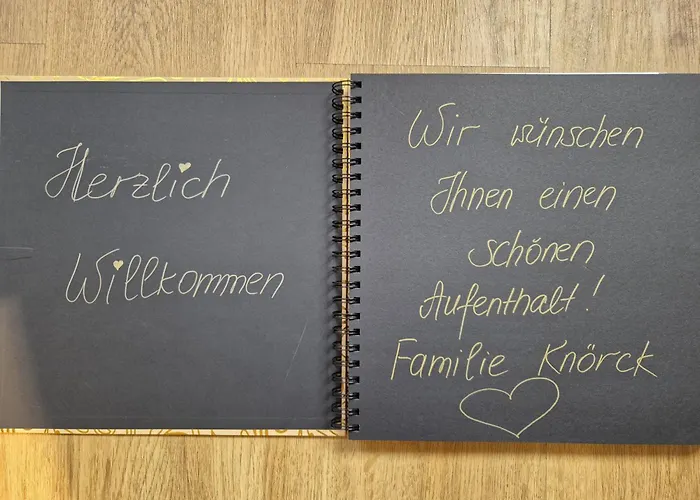 Herzlich
Willkommen
Wir wünschen
Ihnen einen
schönen
Aufenthalt!
Familie Knörck